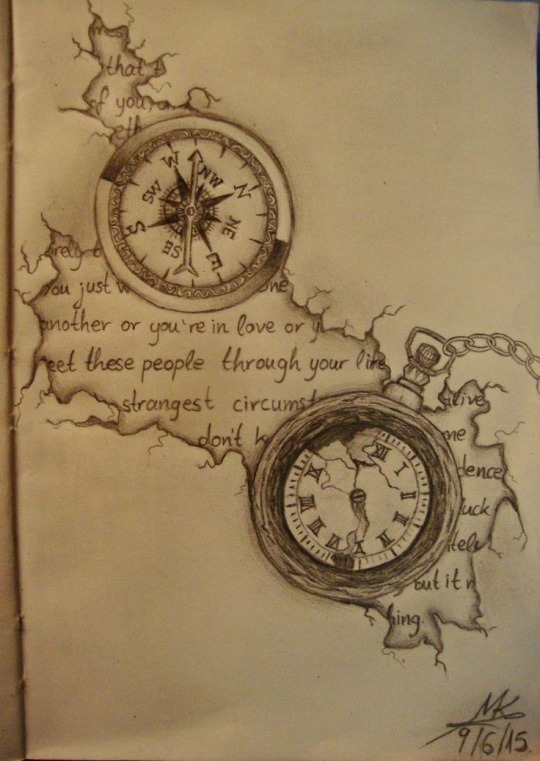 that
f you
eth
W NW N
SW NE
S
SE E
you just w ne
another or you're in love or y
eet these people through your life
strangest circumst alive
don't k me
dence
luck
itely
but it n
hing.
XII I II III IIII V VI VII VIII IX X XI
MK
9/6/15.